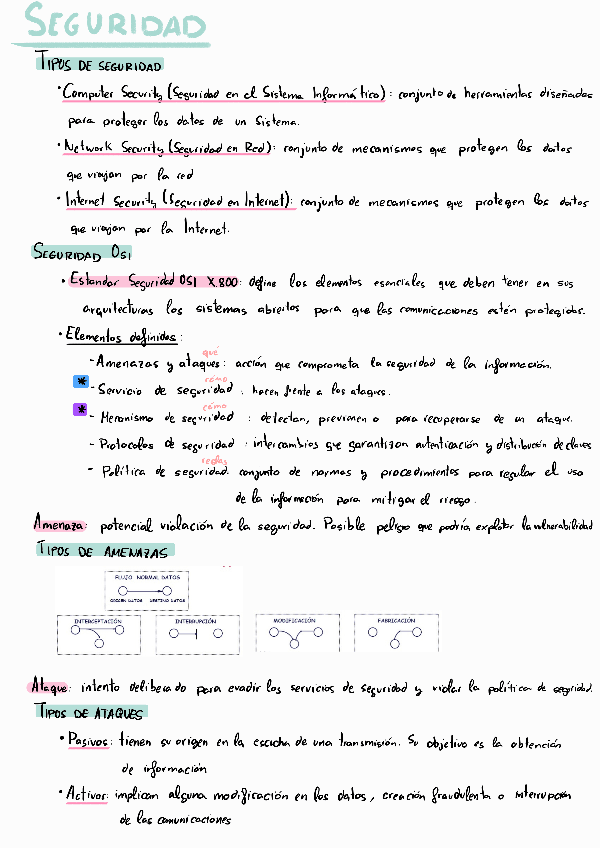 SEGURIDAD
TIPOS DE SEGURIDAD
· Computer Security (Seguridad en el Sistema Informático): conjunto de herramientas diseñadas
para proteger los datos de un Sistema.
· Network Security (Seguridad en Red): conjunto de mecanismos que protegen los datos
que viajan por la red
· Internet Security (Seguridad en Internet): conjunto de mecanismos que protegen los datos
que viajan por la Internet.
SEGURIDAD OSI
· Estandar Seguridad OSI X.800: define los elementos esenciales que deben tener en sus
arquitecturas los sistemas abiertos para que las comunicaciones estén protegidas.
· Elementos definidos:
qué
- Amenazas y ataques: acción que comprometa la seguridad de la información.
cómo
* - Servicio de seguridad: hacen frente a los ataques.
cómo
* - Mecanismo de seguridad: detectan, previenen o para recuperarse de un ataque.
- Protocolos de seguridad: intercambios que garantizan autenticación y distribución de claves
reglas
- Política de seguridad: conjunto de normas y procedimientos para regular el uso
de la información para mitigar el riesgo.
Amenaza: potencial violación de la seguridad. Posible peligro que podría explotar la vulnerabilidad
TIPOS DE AMENAZAS
FLUJO NORMAL DATOS
ORIGEN DATOS DESTINO DATOS
INTERCEPTACIÓN INTERRUPCIÓN MODIFICACIÓN FABRICACIÓN
Ataque: intento deliberado para evadir los servicios de seguridad y violar la política de seguridad.
TIPOS DE ATAQUES
· Pasivos: tienen su origen en la escucha de una transmisión. Su objetivo es la obtención
de información
· Activos: implican alguna modificación en los datos, creación fraudulenta o interrupción
de las comunicaciones